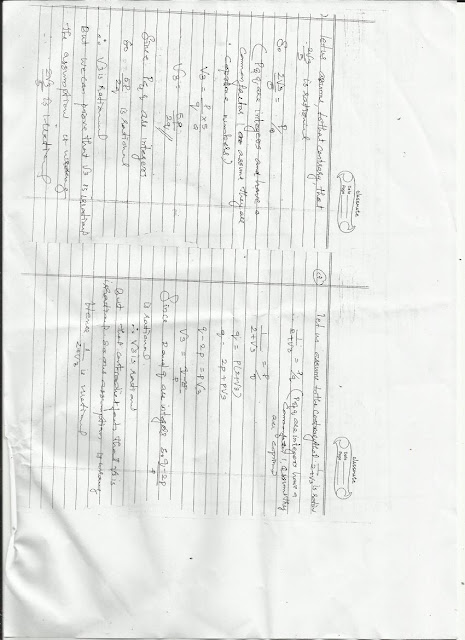 classmate
Date
Page
let us assume, to the contrary that
2√3/5 is rational
So 2√3/5 = p/q
(p & q are integers and have a
common factor 1 (or assume they are
Coprime numbers)
√3 = p/q × 5
√3 = 5p/2q
Since p, q are integers
So 5p/2q is rational
∴ √3 is Rational
But we can prove that √3 is irrational
The assumption is wrong
2√3/5 is irrational
classmate
Date
Page
let us assume to the contrary that 1/2+√3 is ration
1/2+√3 = p/q (p & q are integers have a
common factor 1, assume they
are coprime
1/2+√3 = p/q
q = p(2+√3)
q = 2p+p√3
q-2p = p√3
√3 =
Since p and q are integer So q-2p
is rational
∴ √3 is Rational
But that contradict fact that √3 is
irrational So our assumption is wrong
Hence 1/2+√3 is irrational